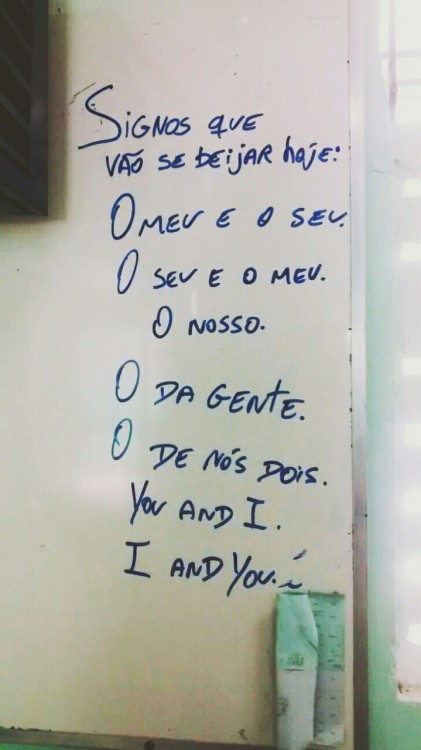 SIGNOS QUE
VÃO SE BEIJAR hoje:
O MEU E O SEU.
O SEU E O MEU.
O NOSSO.
O DA GENTE.
O DE NÓS DOIS.
YOU AND I.
I AND YOU.